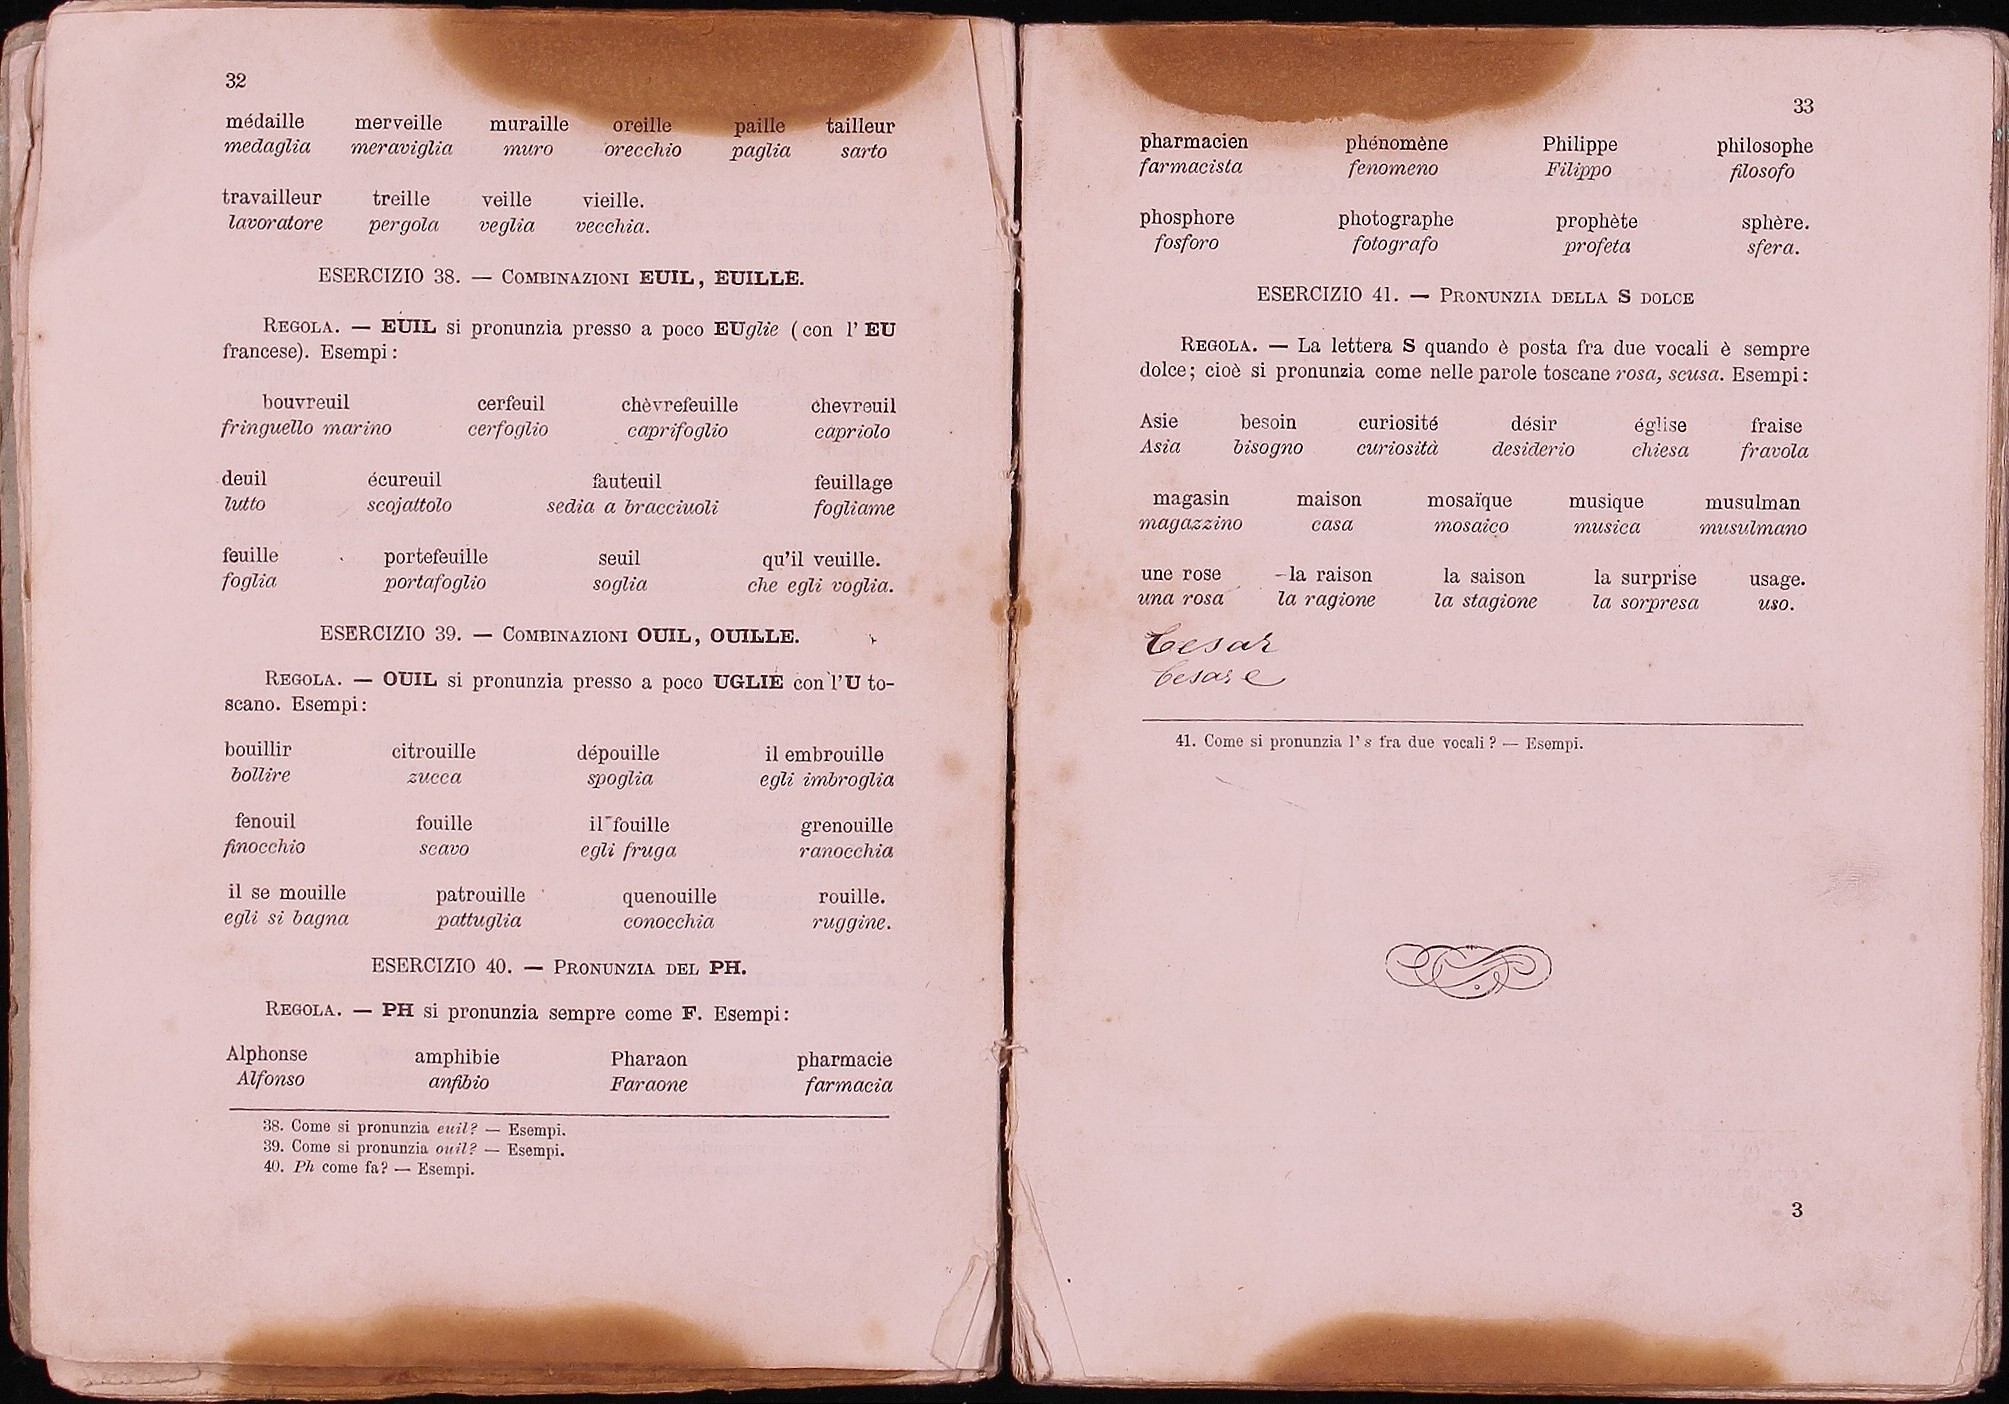 32
médaille merveille muraille oreille paille tailleur
medaglia meraviglia muro orecchio paglia sarto
travailleur treille veille vieille.
lavoratore pergola veglia vecchia.
ESERCIZIO 38. — COMBINAZIONI EUIL, EUILLE.
REGOLA. — EUIL si pronunzia presso a poco EUglie (con l' EU
francese). Esempi:
bouvreuil cerfeuil chèvrefeuille chevreuil
fringuello marino cerfoglio caprifoglio capriolo
deuil écureuil fauteuil feuillage
lutto scojattolo sedia a bracciuoli fogliame
feuille portefeuille seuil qu'il veuille.
foglia portafoglio soglia che egli voglia.
ESERCIZIO 39. — COMBINAZIONI OUIL, OUILLE.
REGOLA. — OUIL si pronunzia presso a poco UGLIE con l'U to-
scano. Esempi:
bouillir citrouille dépouille il embrouille
bollire zucca spoglia egli imbroglia
fenouil fouille il fouille grenouille
finocchio scavo egli fruga ranocchia
il se mouille patrouille quenouille rouille.
egli si bagna pattuglia conocchia ruggine.
ESERCIZIO 40. — PRONUNZIA DEL PH.
REGOLA. — PH si pronunzia sempre come F. Esempi:
Alphonse amphibie Pharaon pharmacie
Alfonso anfibio Faraone farmacia
38. Come si pronunzia euil? — Esempi.
39. Come si pronunzia ouil? — Esempi.
40. Ph come fa? — Esempi.
33
pharmacien phénomène Philippe philosophe
farmacista fenomeno Filippo filosofo
phosphore photographe prophète sphère.
fosforo fotografo profeta sfera.
ESERCIZIO 41. — PRONUNZIA DELLA S DOLCE
REGOLA. — La lettera S quando è posta fra due vocali è sempre
dolce; cioè si pronunzia come nelle parole toscane rosa, scusa. Esempi:
Asie besoin curiosité désir église fraise
Asia bisogno curiosità desiderio chiesa fravola
magasin maison mosaïque musique musulman
magazzino casa mosaico musica musulmano
une rose la raison la saison la surprise usage.
una rosa la ragione la stagione la sorpresa uso.
Cesar
Cesare
41. Come si pronunzia l' s fra due vocali? — Esempi.
3